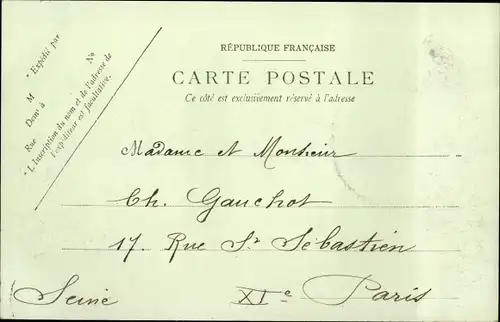 RÉPUBLIQUE FRANÇAISE
CARTE POSTALE
Ce côté est exclusivement réservé à l'adresse
* Expédié par
M
Demt à
Rue No
* L'inscription du nom et de l'adresse de
l'expéditeur est facultative.
Madame et Monsieur
Ch. Gauchot
17. Rue St Sébastien
Seine XIe Paris